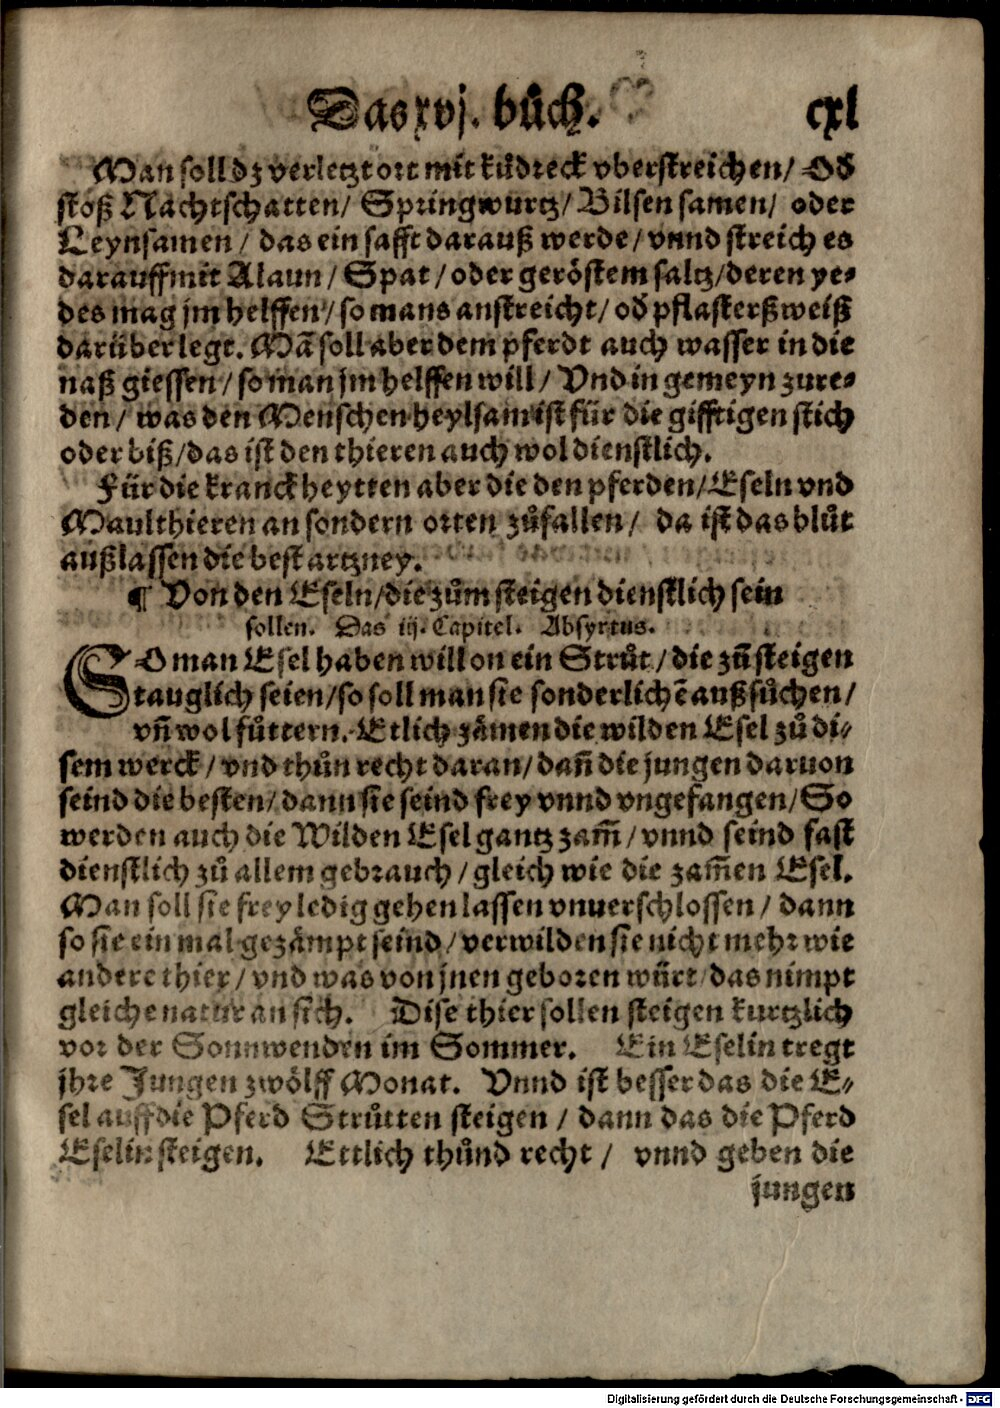 Das xvj. bůch. cxl
Man soll dz verletzt ort mit kůdreck vberstreichen / Od̕
stoß Nachtschatten / Springwurtz / Bilsen samen / oder
Leynsamen / das ein safft darauß werde / vnnd streich es
darauff mit Alaun / Spat / oder geröstem saltz / deren ye⸗
des mag jm helffen / so mans anstreicht / od̕ pflasterß weiß
darüber legt. Mã soll aber dem pferdt auch wasser in die
naß giessen / so man jm helffen will / Vnd in gemeyn zure⸗
den / was den Menschen heylsam ist für die gifftigen stich
oder biß / das ist den thieren auch wol dienstlich.
Für die kranckheytten aber die den pferden / Eseln vnd
Maulthieren an sondern orten zůfallen / da ist das blůt
außlassen die best artzney.
¶ Von den Eseln / die zům steigen dienstlich sein
sollen. Das iij. Capitel. Absyrtus.
SO man Esel haben will on ein Strůt / die zů steigen
tauglich seien / so soll man sie sonderlichẽ außsůchen /
vñ wol fůttern. Etlich zämen die wilden Esel zů di⸗
sem werck / vnd thůn recht daran / dañ die jungen daruon
seind die besten / dann sie seind frey vnnd vngefangen / So
werden auch die Wilden Esel gantz zam̃ / vnnd seind fast
dienstlich zů allem gebrauch / gleich wie die zam̃en Esel.
Man soll sie frey ledig gehen lassen vnuerschlossen / dann
so sie ein mal gezämpt seind / verwilden sie nicht mehr wie
andere thier / vnd was von jnen geboren würt das nimpt
gleiche natur an sich. Dise thier sollen steigen kurtzlich
vor der Sonnwenden im Sommer. Ein Eselin tregt
jhre Jungen zwölff Monat. Vnnd ist besser das die E⸗
sel auff die Pferd Strůtten steigen / dann das die Pferd
Eselin steigen. Ettlich thůnd recht / vnnd geben die
jungen
Digitalisierung gefördert durch die Deutsche Forschungsgemeinschaft - DFG